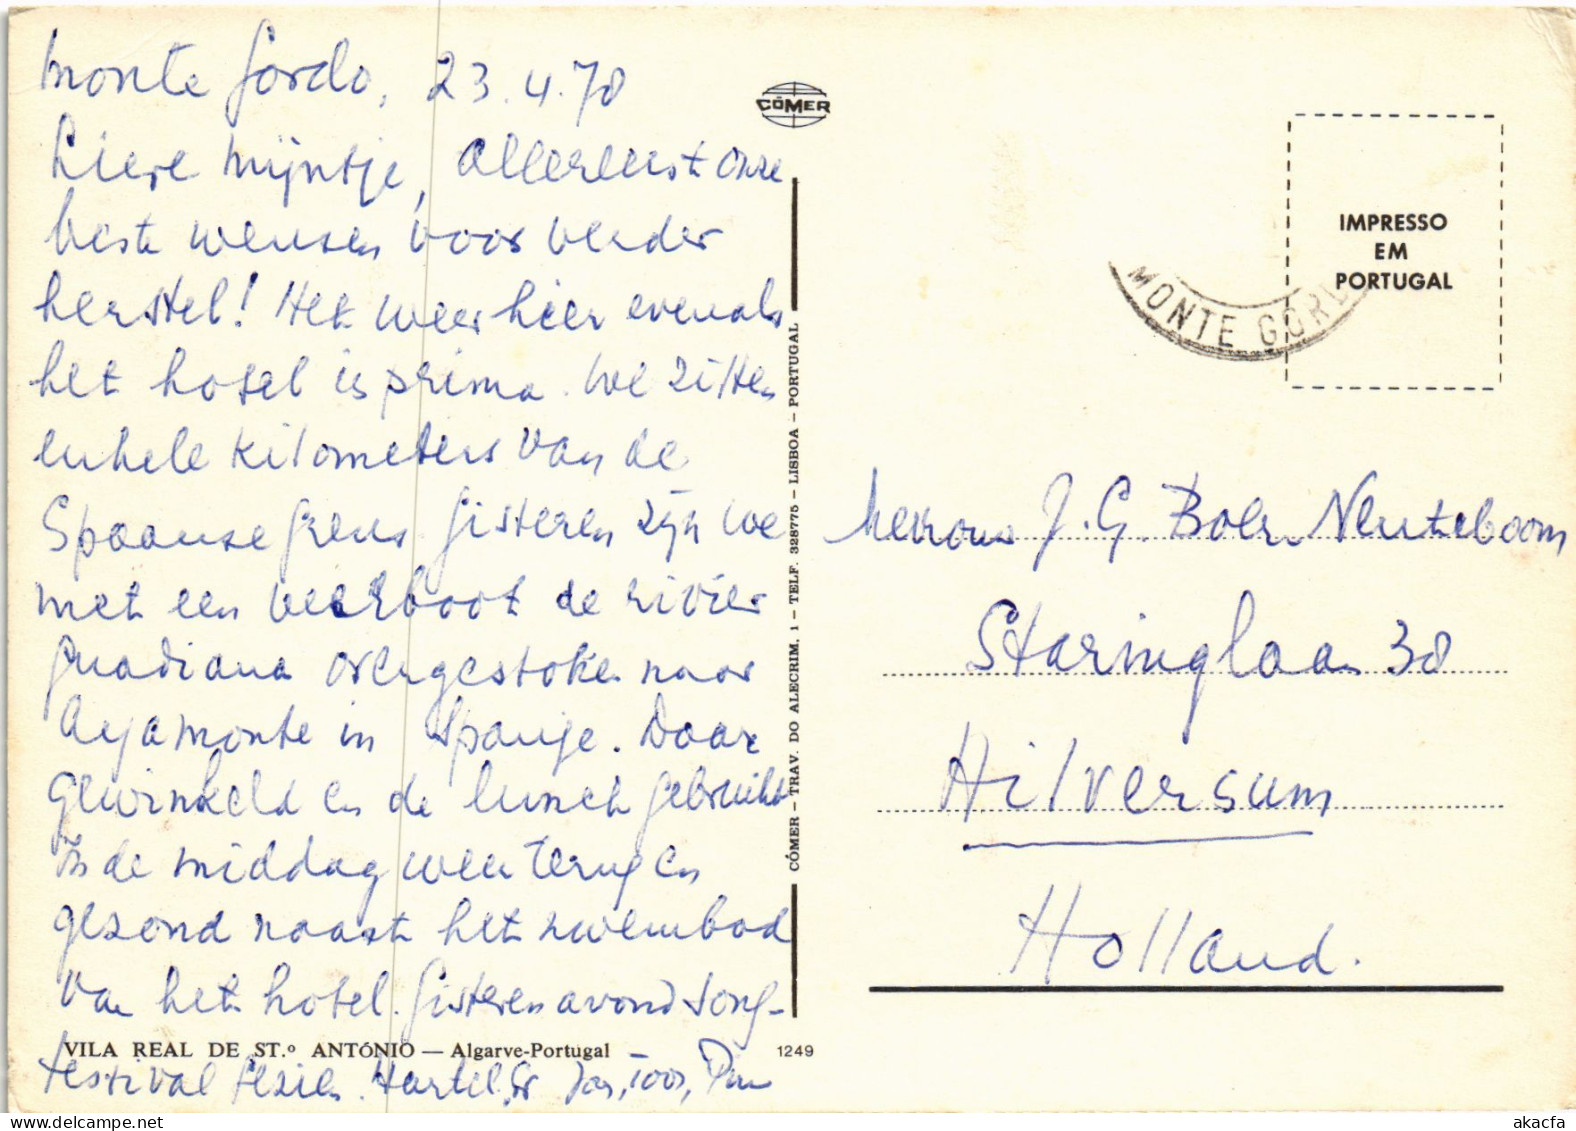 Monte Gordo, 23.4.78
Lieve Mijntje, Allereerst onze
beste wensen voor verder
herstel! Het weer hier evenals
het hotel is prima. We zitten
enkele kilometers van de
Spaanse grens. Gisteren zijn we
met een veerboot de rivier
Guadiana overgestoken naar
Ayamonte in Spanje. Daar
gewinkeld en de lunch gebruikt
In de middag weer terug en
gezond naast het zwembad
van het hotel. Gisteren avond song-
festival gezien. Hartel. gr
VILA REAL DE ST.º ANTÓNIO — Algarve-Portugal
1249
CÔMER
CÔMER — TRAV. DO ALECRIM, 1 — TELF. 328775 — LISBOA — PORTUGAL
IMPRESSO
EM
PORTUGAL
MONTE GORD
Mevrouw J. G. Boer Neuteboom
Staringlaan 38
Hilversum
Holland.
akacfa